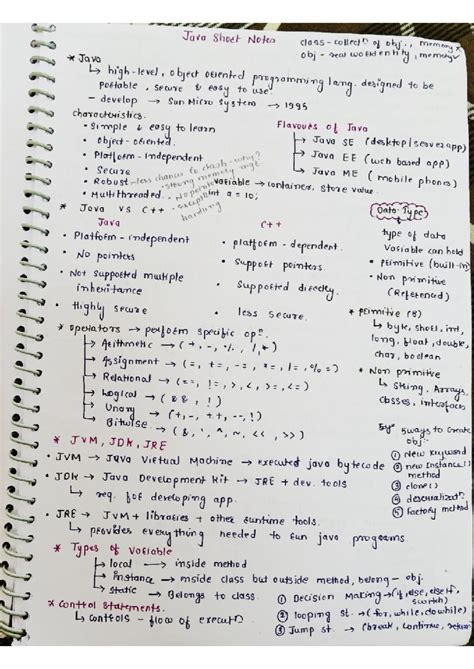 Java Short Notes
class - collectn of obj., memory x
obj - real world entity, memory ✓
* Java
↳ high-level, object oriented programming lang. designed to be
portable, secure & easy to use.
- develop → Sun Micro System → 1995
Characteristics.
• Simple & easy to learn
• Object-oriented.
• Platform-independent
• Secure
• Robust - less chances to crash - why?
- strong memory mge
- No pointers
- exception
handling
• Multithreaded.
Flavours of Java
→ Java SE (desktop|server app)
→ Java EE (web based app)
→ Java ME (mobile phones)
variable → container, store value.
int a = 10;
* Java vs C++
Java
C++
• Platform-independent
• platform-dependent.
• No pointers
• Support pointers
• Not supported multiple
inheritance
• Supported directly.
• Highly secure
• less secure.
Data Type
type of data
variable can hold
• primitive (built-in)
• Non primitive
(Referenced)
* primitive (8)
↳ byte, short, int,
long, float, double,
char, boolean
* Non primitive
↳ String, Arrays,
Classes, interfaces
* operators → perform specific opn.
→ Arithmetic → (+, -, %, /, *)
→ Assignment → (=, +=, -=, *=, /=, %=)
→ Relational → (==, !=, >, <, >=, <=)
→ Logical → (&&, !)
→ Unary → (+, -, ++, --, !)
→ Bitwise → (&, ^, ~, <<, >>)
5 ways to create
obj.
① New keyword
② new Instance()
method
③ clone()
④ deserializatn
⑤ factory method
* JVM, JDK, JRE
• JVM → Java Virtual Machine → executed java bytecode
• JDK → Java Development kit → JRE + dev. tools
↳ req. for developing app.
• JRE → JVM + libraries + other runtime tools.
↳ provides everything needed to run java programs.
* Types of variable
→ local → inside method
→ instance → inside class but outside method, belong - obj.
→ static → belongs to class.
* Control Statements.
↳ controls - flow of executn
① Decision Making → (if, else, else if, switch)
② looping st. → (for, while, do while)
③ Jump st. → (break, continue, return)